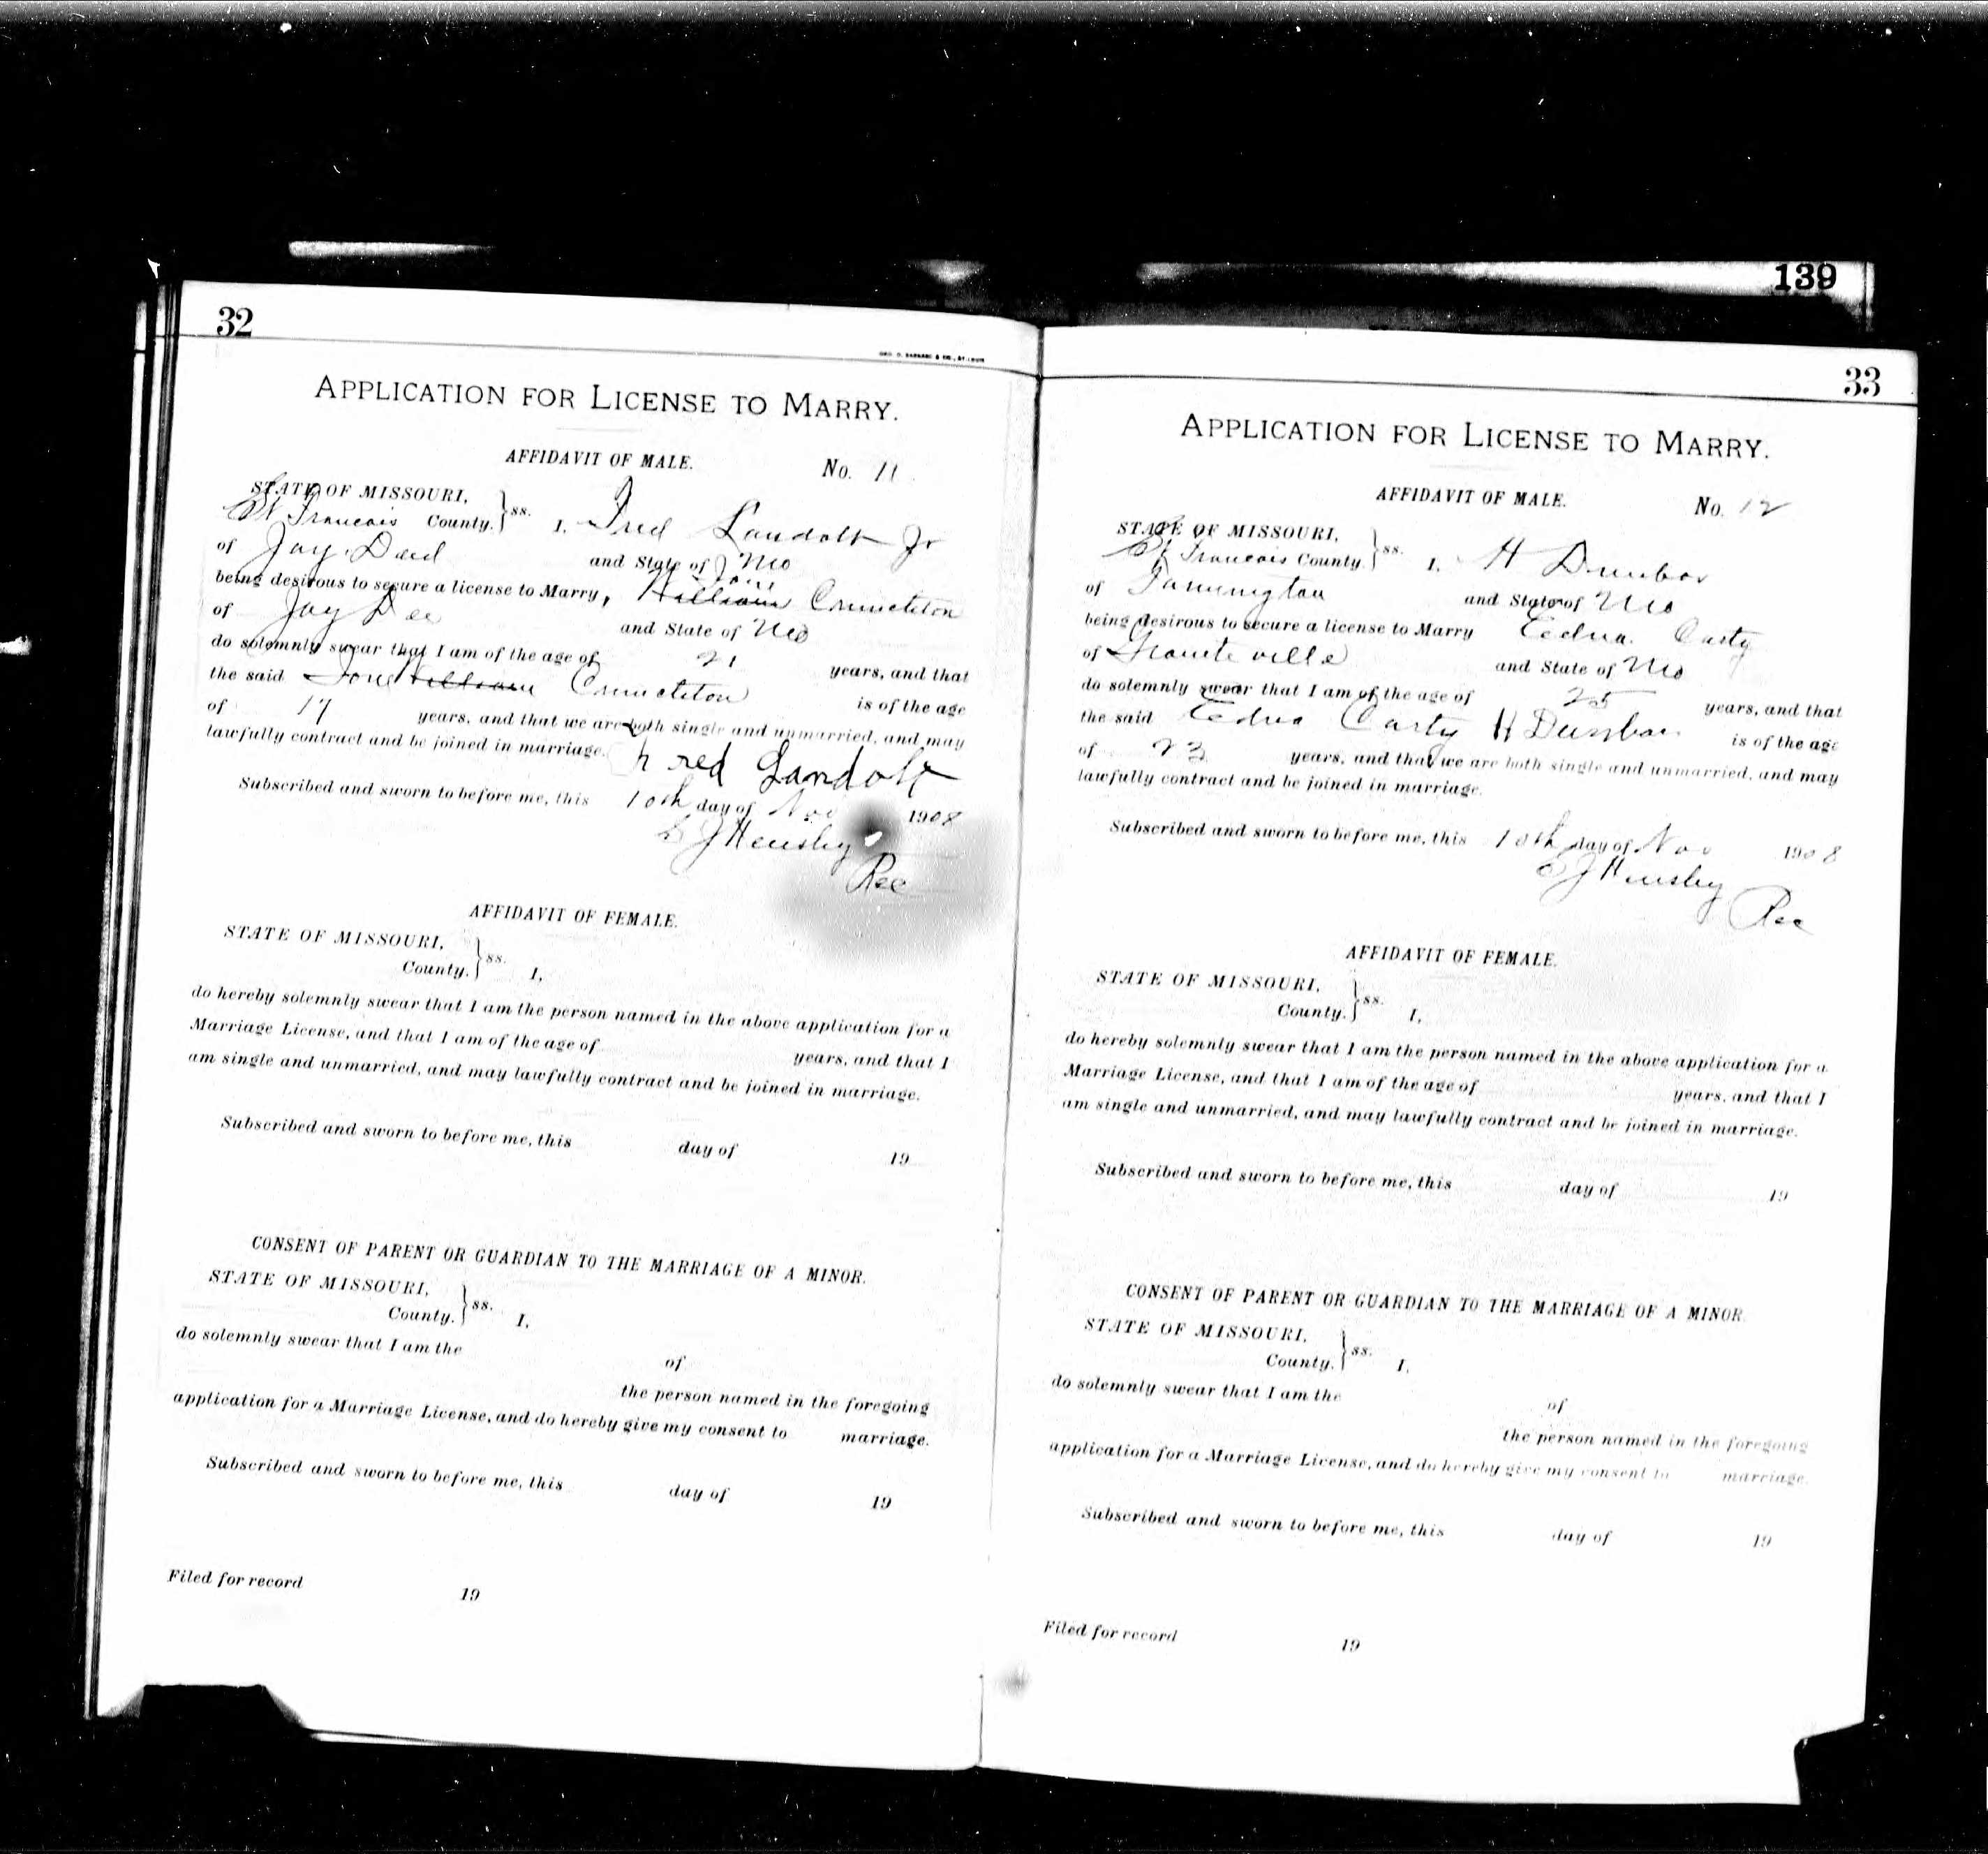 139
32
GEO. D. BARNARD & CO., ST. LOUIS
APPLICATION FOR LICENSE TO MARRY.
AFFIDAVIT OF MALE. No. 11
STATE OF MISSOURI,
St Francois County. } ss. I, Fred Landolt Jr
of Jay. Deed and State of Mo
being desirous to secure a license to Marry,
of Jay Dee and State of Mo
do solemnly swear that I am of the age of 21 years, and that
the said is of the age
of 17 years, and that we are both single and unmarried, and may
lawfully contract and be joined in marriage. Fred Landolt
Subscribed and sworn to before me, this 10th day of Nov 1908
J Hensley
Rec
AFFIDAVIT OF FEMALE.
STATE OF MISSOURI,
County. } ss. I,
do hereby solemnly swear that I am the person named in the above application for a
Marriage License, and that I am of the age of years, and that I
am single and unmarried, and may lawfully contract and be joined in marriage.
Subscribed and sworn to before me, this day of 19
CONSENT OF PARENT OR GUARDIAN TO THE MARRIAGE OF A MINOR.
STATE OF MISSOURI,
County. } ss. I,
do solemnly swear that I am the of
the person named in the foregoing
application for a Marriage License, and do hereby give my consent to marriage.
Subscribed and sworn to before me, this day of 19
Filed for record 19
33
APPLICATION FOR LICENSE TO MARRY.
AFFIDAVIT OF MALE. No. 12
STATE OF MISSOURI,
St Francois County } ss. I, H Dunbar
of Farmington and State of Mo
being desirous to secure a license to Marry Eedna. Carty
of Graniteville and State of Mo
do solemnly swear that I am of the age of 25 years, and that
the said Eedna Carty H Dunbar is of the age
of 23 years, and that we are both single and unmarried, and may
lawfully contract and be joined in marriage.
Subscribed and sworn to before me, this 10th day of Nov 1908
J Hensley
Rec
AFFIDAVIT OF FEMALE.
STATE OF MISSOURI,
County. } ss. I,
do hereby solemnly swear that I am the person named in the above application for a
Marriage License, and that I am of the age of years, and that I
am single and unmarried, and may lawfully contract and be joined in marriage.
Subscribed and sworn to before me, this day of 19
CONSENT OF PARENT OR GUARDIAN TO THE MARRIAGE OF A MINOR.
STATE OF MISSOURI,
County. } ss. I,
do solemnly swear that I am the of
the person named in the foregoing
application for a Marriage License, and do hereby give my consent to marriage.
Subscribed and sworn to before me, this day of 19
Filed for record 19